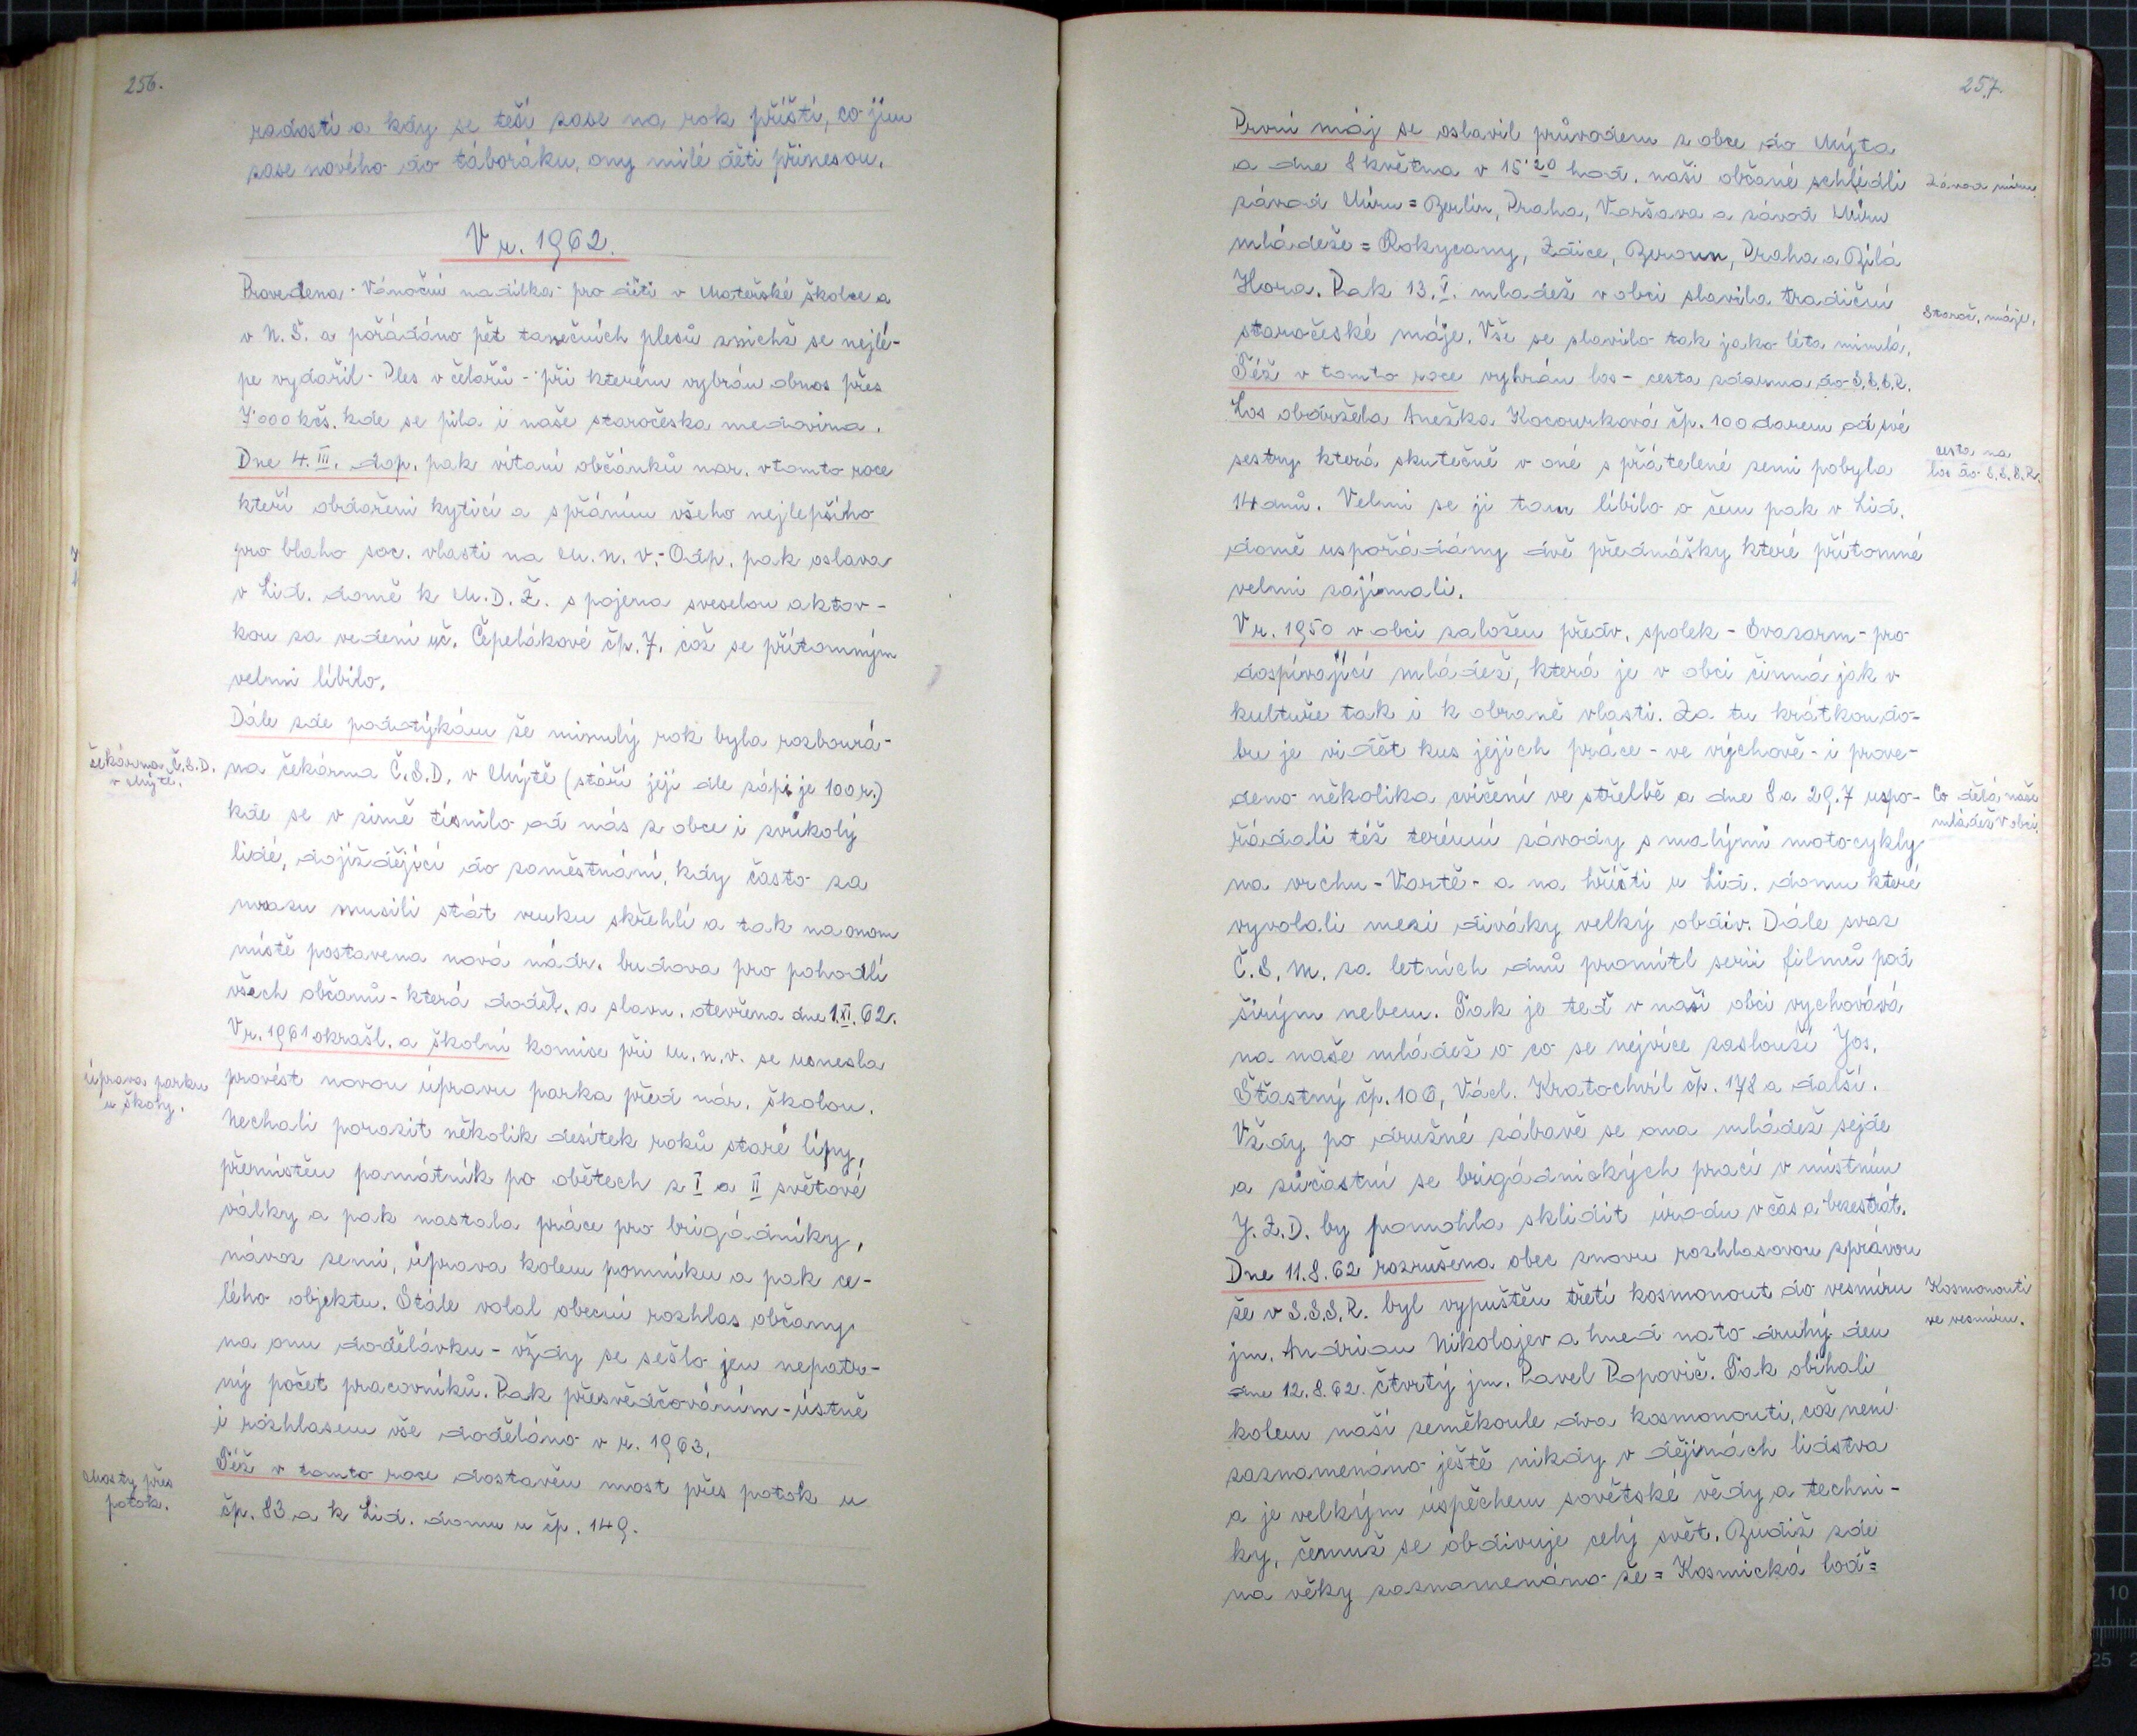 256.
radostí a kdy se teší zase na rok příští, co jim
zase nového do táboráku, ony milé děti přinesou.
V r. 1962.
Provedena - Vánoční nadílka - pro děti v Mateřské školce a
v N. Š. a pořádáno pět tanečních plesů znichž se nejlé-
pe vydařil - Ples včelařů - při kterém vybrán obnos přes
7'000 kčs. kde se pila i naše staročeska medovina.
Dne 4. III. dop. pak vítaní občánků nar. vtomto roce
kteří obdařeni kyticí a spřáním všeho nejlepšího
pro blaho soc. vlasti na M. n. v. - Odp. pak oslava
v Lid. domě k M. D. Ž. spojena sveselou aktov-
kou za vedení uč. Čepelákové čp. 7. což se přítomným
velmi líbilo.
Dále zde podotýkám že minulý rok byla rozbourá-
čekárna Č.S.D.
v Mýtě.
na čekárna Č.S.D. v Mýtě (stáří její dle zápi je 100 r.)
kde se v zimě tísnilo od nás z obce i zvůkolý
lidé, dojíždějící do zaměstnání, kdy často za
mrazu musili stát venku skřehlí a tak na onom
místě postavena nová nádr. budova pro pohodlí
všech občanů - která doděl. a slavn. otevřena dne 1. XI. 62.
V r. 1961 okrašl. a školní komise při M. n. v. se usnesla
úprava parku
u školy.
provést novou úpravu parka před nár. školou.
Nechali porazit několik desítek roků staré lípy,
přemístěn památník po obětech z I a II světové
války a pak nastala práce pro brigádníky,
návoz zemi, úprava kolem pomníku a pak ce-
lého objektu. Stále volal obecní rozhlas občany
na onu dodělávku - vždy se sešlo jen nepatr-
ný počet pracovníků. Pak přesvědčováním - ústně
i rozhlasem vše doděláno v r. 1963.
Též v tomto roce dostavěn most přes potok u
Mosty přes
potok.
čp. 83 a k Lid. domu u čp. 149.
257.
První máj se oslavil průvodem z obce do Mýta
a dne 8 května v 15'20 hod. naši občané schlédli
Závod míru.
závod Míru = Berlín, Praha, Varšava a závod Míru
mládeže = Rokycany, Zdice, Beroun, Praha a Bílá
Hora. Pak 13. V. mladež v obci slavila tradiční
Staroč. máje.
staročeské máje. Vše se slavilo tak jako léta minulá.
Též v tomto roce vyhrán los - cesta zdarma do S.S.S.R.
Los obdržela Anežka Kocourková čp. 100 darem od své
sestry která skutečně v oné spřátelené zemi pobyla
cesta na
los do S.S.S.R.
14 dnů. Velmi se ji tam líbilo o čem pak v Lid.
domě uspořádány dvě přednášky které přítomné
velmi zajímali.
V r. 1950 v obci založen předv. spolek - Svazarm - pro
dospívající mládež, která je v obci činná jak v
kultuře tak i k obraně vlasti. Za tu krátkou do-
bu je vidět kus jejich práce - ve výchově - i prove-
deno několika cvičení ve střelbě a dne 8 a 29. 7 uspo-
Co dělá naše
mládež v obci.
řádali též terénní závody s malými motocykly
na vrchu - Vartě - a na hřišti u Lid. domu které
vyvolali mezi diváky velký obdiv. Dále svaz
Č. S. M. za letních dnů promítl serii filmů pod
širým nebem. Tak je teď v naší obci vychovává
na naše mládež o co se nejvíce zaslouží Jos.
Šťastný čp. 106, Václ. Kratochvíl čp. 178 a další.
Vždy po družné zábavě se ona mládež sejde
a zůčastní se brigádnických prací v místním
J. Z. D. by pomohla sklidit úrodu včas a bezestrát.
Dne 11. 8. 62 rozrušena obec znovu rozhlasovou zprávou
že v S.S.S.R. byl vypuštěn třetí kosmonout do vesmíru
Kosmonouti
ve vesmíru.
jm. Andrian Nikolajev a hned nato druhý den
dne 12. 8. 62. čtvrtý jm. Pavel Popovič. Tak obíhali
kolem naší zeměkoule dva kosmonouti, což není
zaznamenáno ještě nikdy v dějinách lidstva
a je velkým úspěchem sovětské vědy a techni-
ky, čemuž se obdivuje celý svět. Budiž zde
na věky zaznamenáno že = Kosmická loď =